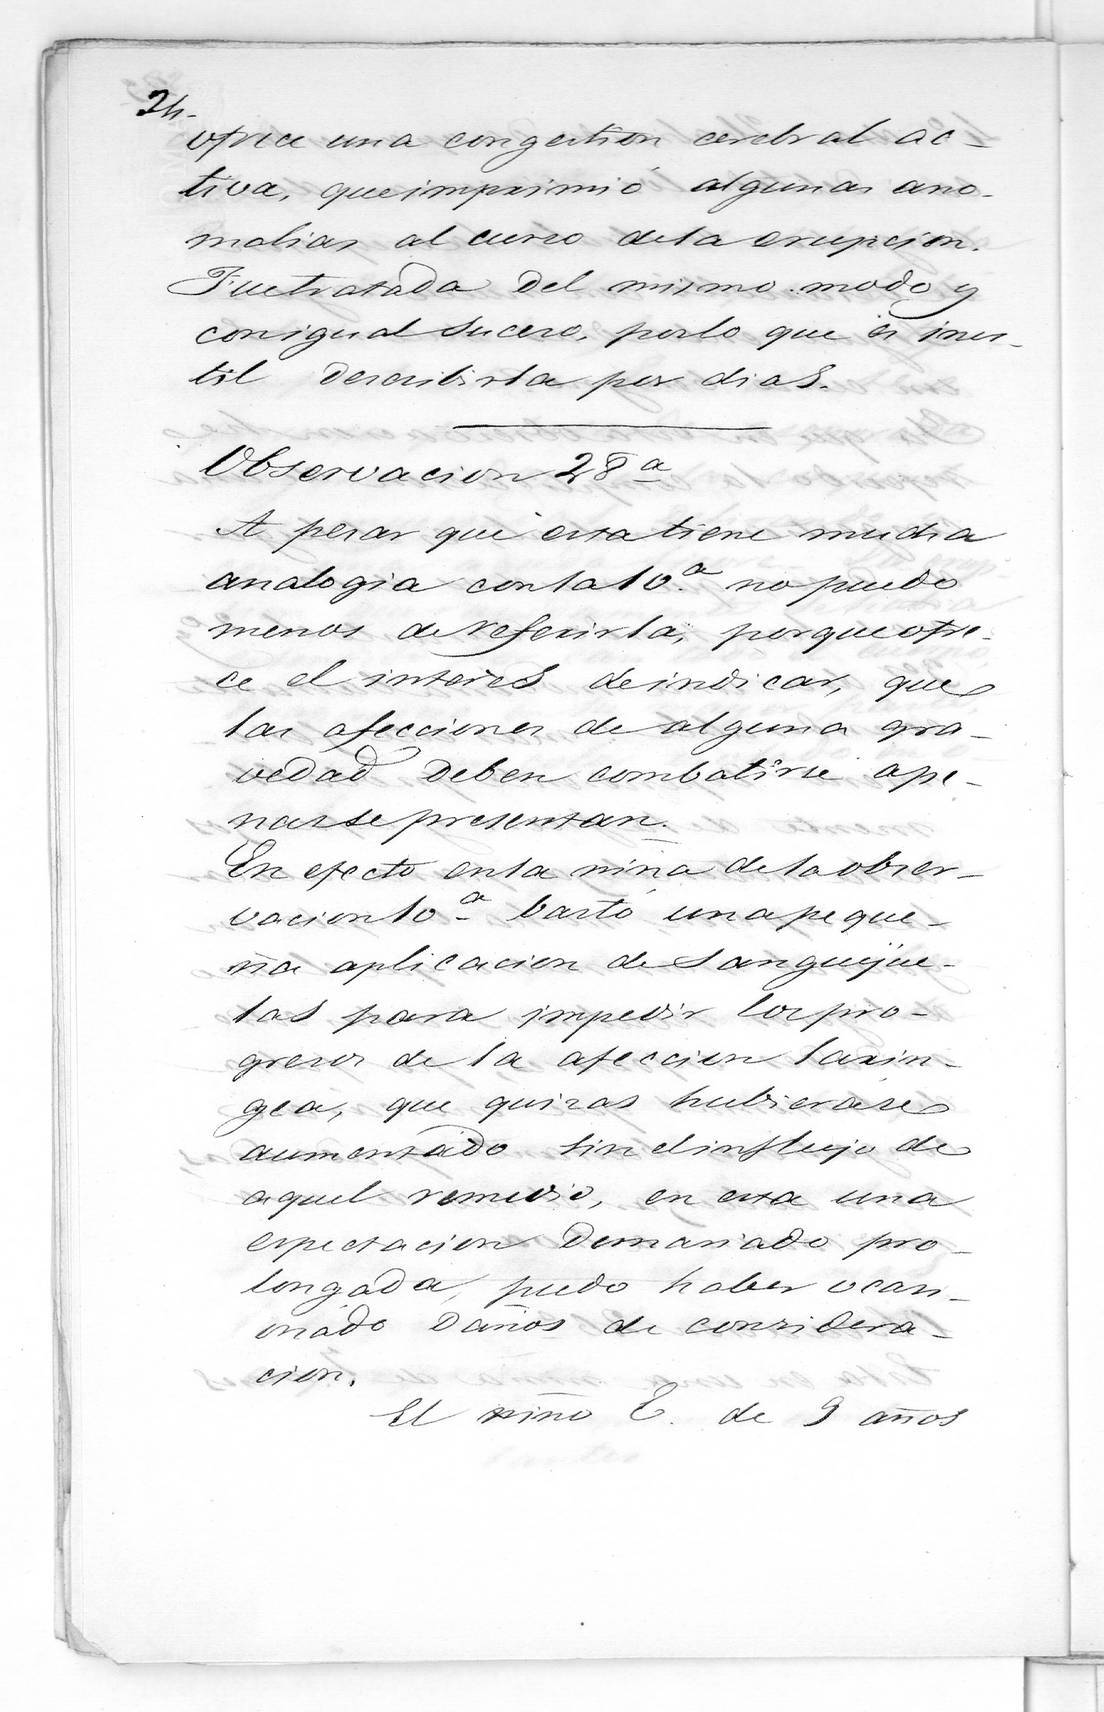 24.
ofrece una congestion cerebral ac-
tiva, que imprimió algunas ano-
malias al curso de la erupcion.
Fue tratada del mismo modo y
con igual suceso, por lo que es inu-
til describirla por dias.
Observacion 28ª
A pesar que esta tiene mucha
analogia con la 10.ª no puedo
menos de referirla, porque ofre-
ce el interes de indicar, que
las afecciones de alguna gra-
vedad deben combatirse ape-
nas se presentan.
En efecto en la niña de la obser-
vacion 10.ª bastó una peque-
ña aplicacion de sanguijue-
las para impedir los pro-
gresos de la afeccion larin-
gea, que quizas hubierase
aumentado sin el influjo de
aquel remedio, en esta una
espectacion demasiado pro-
longada, pudo haber ocasi-
onado daños de considera-
cion.
El niño E. de 9 años